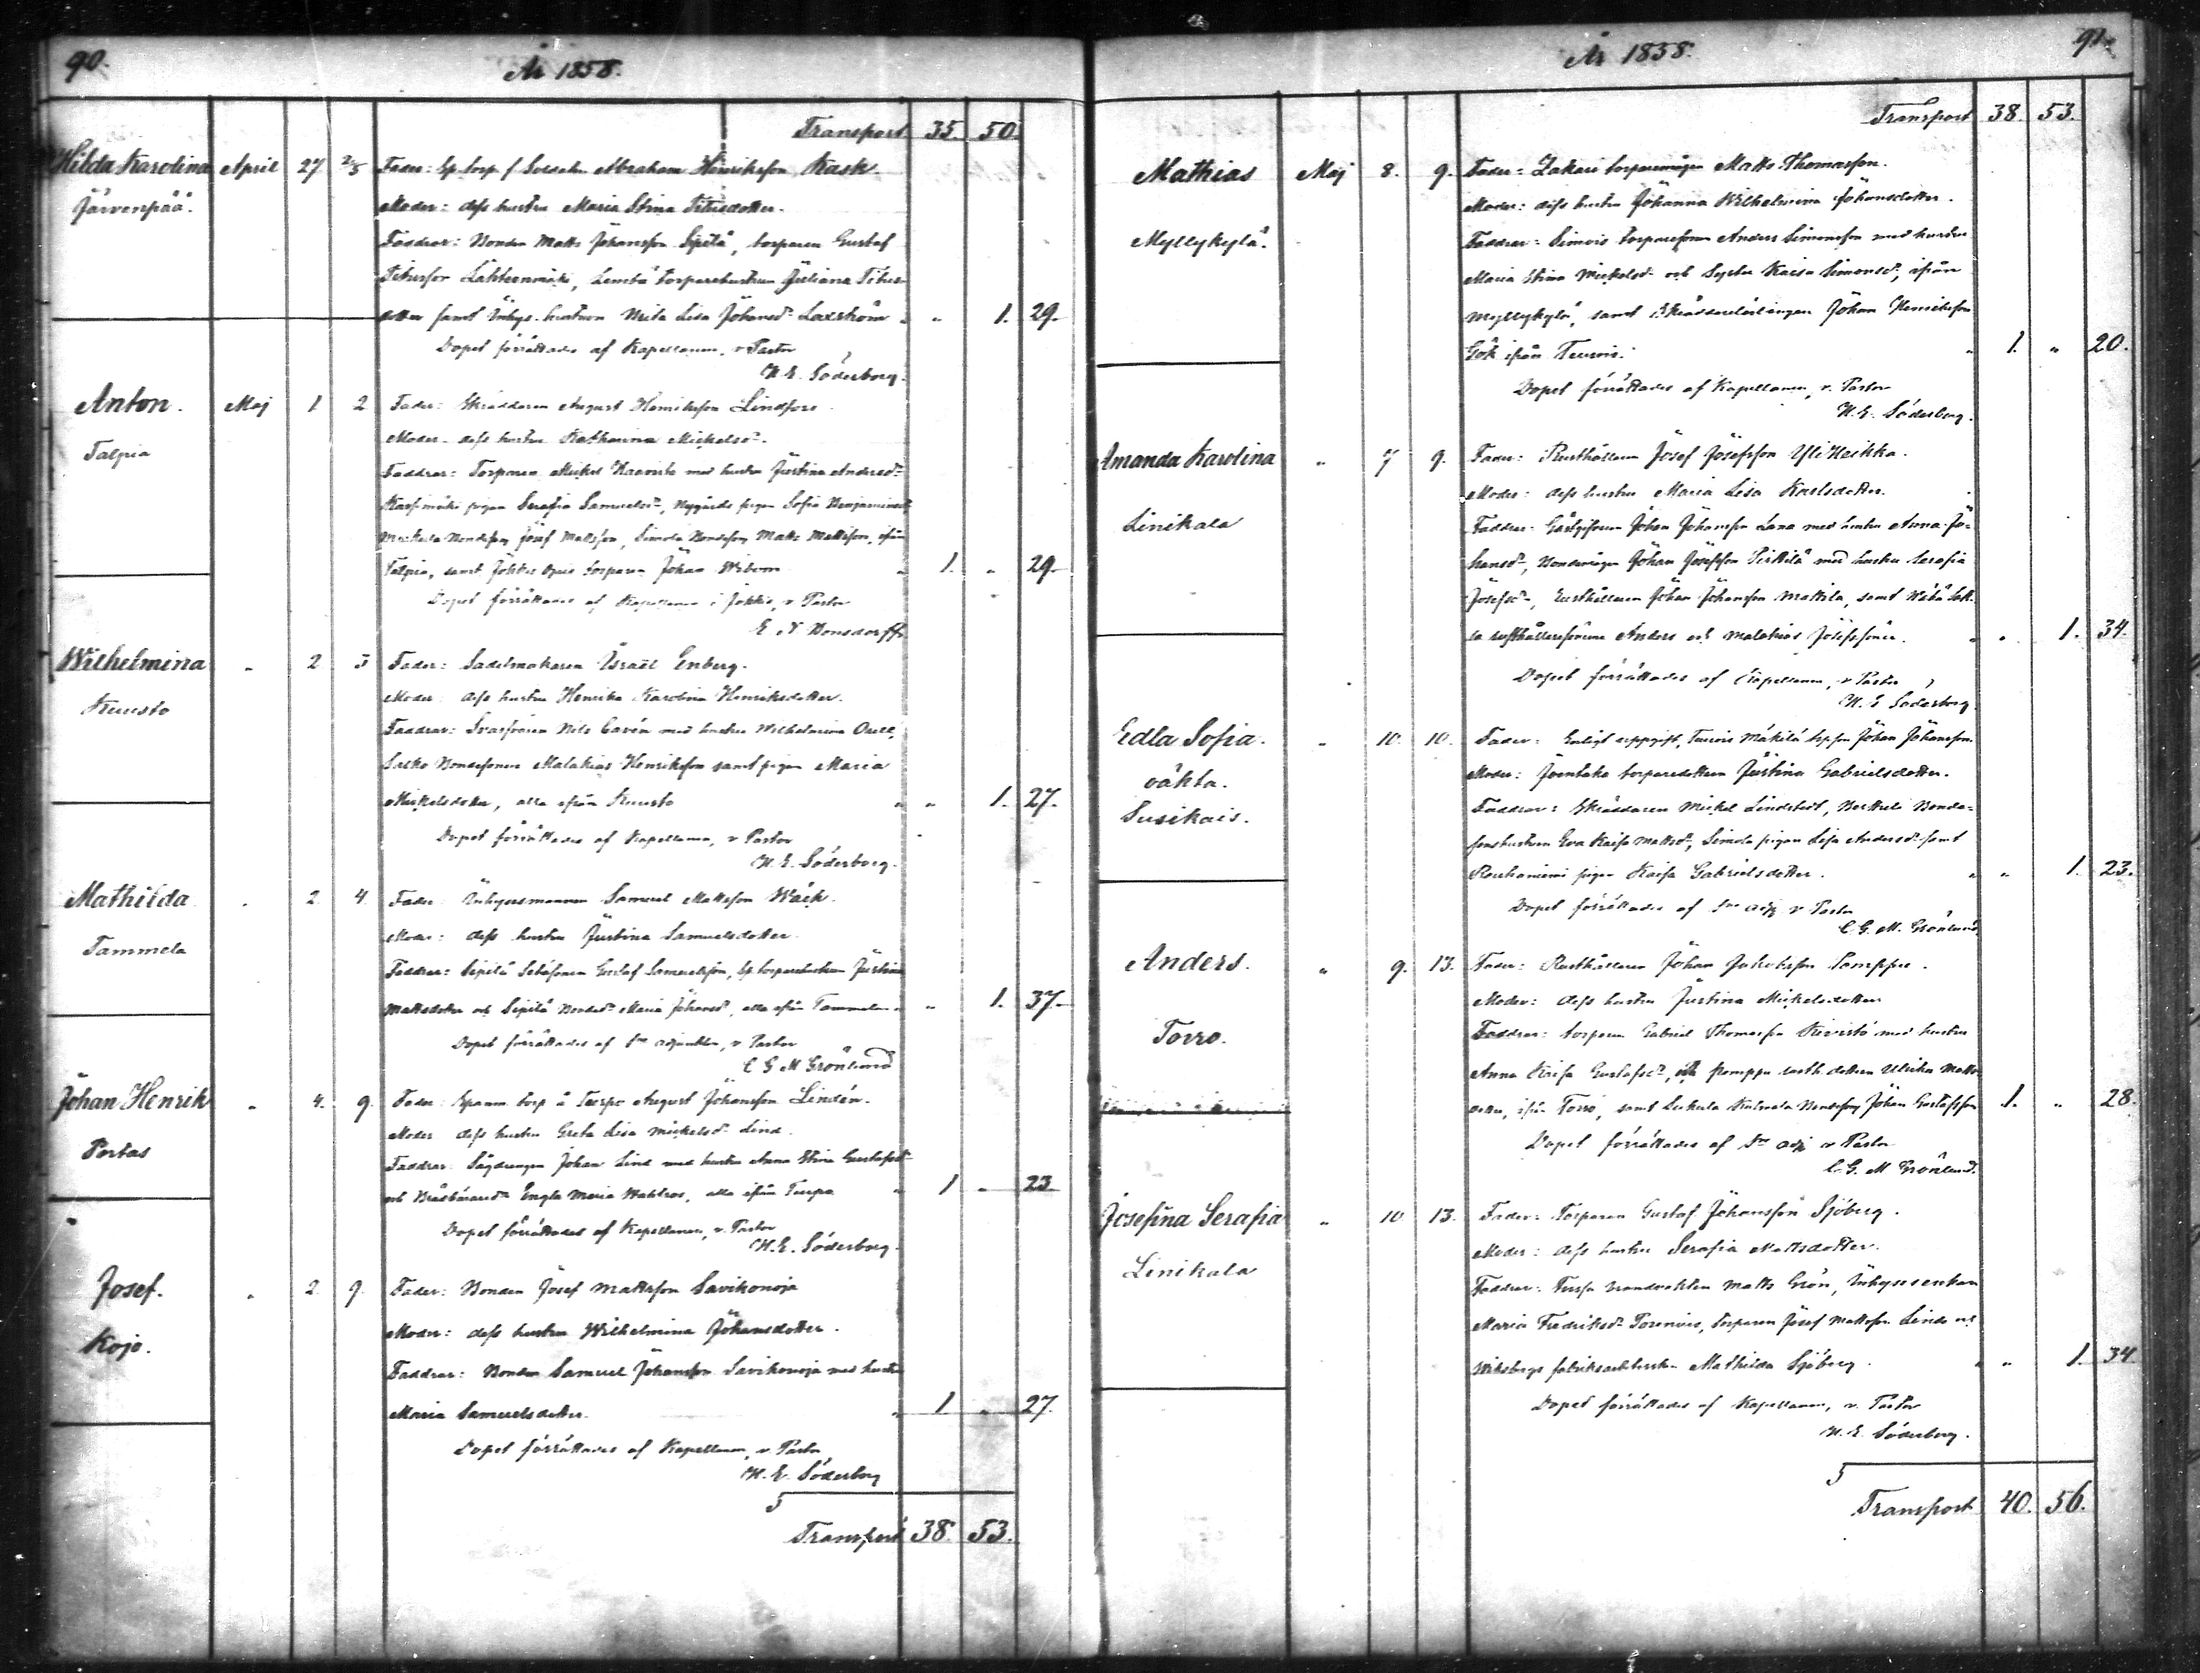 90.
År 1858.
Transport 35. 50.
Hilda Karolina April 27 2/5 Fader: Sp. torp. f. Soldaten Abraham Henriksson Kask
Järvenpää.
Moder: dess hustru Maria Stina Titusdotter.
Faddrar: Bonden Matts Johansson Sipilä, torparen Gustaf
Titusson Lähteenmäki, torparehustrun Juliana Titus-
dotter samt Inhys. hustrun Lisa Johansd:r Laxström " 1. 29.
Dopet förrättades af Kapellanen, v. Pastor
H. E. Söderborg.
Anton. Maj 1 2 Fader: Skräddaren August Henriksson Lindfors.
Talpia
Moder: dess hustru Katharina Mickelsd:r
Faddrar: Torparen Mickel Haavisto med hustru Justina Andersd:r
pigan Serafia Samuelsd:r, Nygårds pigan Sofia Benjaminsd:r
Bondeson Josef Mattsson, Simola Bondeson Matts Mattsson, ifrån
Talpia, samt Jokkis torparen Johan Wibom " 1. " 29.
Dopet förrättades af Kapellanen i Jokkis, v. Pastor
E. N. Bonsdorff.
Wilhelmina " 2 3 Fader: Sadelmakaren Israël Enberg.
Kuusto
Moder: dess hustru Henrika Karolina Henriksdotter.
Faddrar: Svarfvaren Nils Cavén med hustru Wilhelmina Orell,
Salko Bondesonen Malakias Henriksson samt pigan Maria
Mickelsdotter, alla ifrån Kuusto " " 1. 27.
Dopet förrättades af Kapellanen, v. Pastor
H. E. Söderborg.
Mathilda " 2 4. Fader: Inhysesmannen Samuel Mattsson Wäck.
Tammela
Moder: dess hustru Justina Samuelsdotter.
Faddrar: Sipilä Gustaf Samuelsson, Sp. torparehustrun Justina
Mattsdotter och Sipilä Bonded:r Maria Johansd:r, alla ifrån Tammela " " 1. 37.
Dopet förrättades af S:ne adjunkten, v. Pastor
C G M Grönlund
Johan Henrik " 4. 9. Fader: Spanm. torp. å Torpo August Johansson Lindén.
Portas
Moder: dess hustru Greta Lisa Mickelsd:r Lind.
Faddrar: Sågdrängen Johan Lind med hustru Anna Stina Gustafsd:r
och Engla Maria Wahlros, alla ifrån " 1 " 23
Dopet förrättades af Kapellanen, v. Pastor
H. E. Söderborg.
Josef. " 2. 9. Fader: Bonden Josef Mattsson Savikonoja
Kojo.
Moder: dess hustru Wilhelmina Johansdotter.
Faddrar: Bonden Samuel Johansson Savikonoja med hustru
Maria Samuelsdotter. " 1 " 27.
Dopet förrättades af Kapellanen, v. Pastor
H. E. Söderborg
Transport 38. 53.
91.
År 1858.
Transport 38. 53.
Mathias Maj 8. 9. Fader: Zakari torparemågen Matts Thomasson.
Moder: dess hustru Johanna Wilhelmina Johansdotter.
Myllykylä.
Faddrar: Simois torparesonen Anders Simonsson med hustru
Maria Stina Mickelsd:r och Syster Kaisa Simonsd:r, ifrån
Myllykylä, samt Skräddarelärlingen Johan Henriksson
Gök ifrån Teuroi. " 1. " 20.
Dopet förrättades af Kapellanen, v. Pastor
H. E. Söderborg.
Amanda Karolina " 7 9. Fader: Rusthållaren Josef Josefsson Yli Heikka.
Moder: dess hustru Maria Lisa Karlsdotter.
Linikala
Faddrar: Gästgifvaren Johan Johansson Lana med hustru Anna Jo-
hansd:r, Bondemågen Johan Josefsson Pirkilä med hustru Serafia
Josefsd:r, Rusthållaren Johan Johansson Mattila, samt
rusthållaresönerne Anders och Malakias Josefssöner. " " 1. 34.
Dopet förrättades af Kapellanen, v. Pastor
H. E. Söderborg.
Edla Sofia. " 10. 10. Fader: Enligt uppgift, Teuroi Mäkilä Johan Johansson.
oäkta.
Moder: Joentaka torparedottern Justina Gabrielsdotter.
Susikais.
Faddrar: Skräddaren Mickel Lindstedt, Bonde-
sonshustrun Eva Kaisa Mattsd:r, Simola pigan Lisa Andersd:r samt
Rauhaniemi pigan Kaisa Gabrielsdotter. " " 1. 23.
Dopet förrättades af S:ne adj. v. Pastor
C. G. M. Grönlund.
Anders. " 9. 13. Fader: Rusthållaren Johan Jakobsson Pomppu.
Moder: dess hustru Justina Mickelsdotter
Torro.
Faddrar: torparen Gabriel Thomasson Kivistö med hustru
Anna Kaisa Gustafsd:r, och Pomppu rusth. dottern Ulrika Matts-
dotter, ifrån Torro, samt Bondeson Johan Gustafsson 1. " 28.
Dopet förrättades af S:ne adj v. Pastor
C. G. M Grönlund.
Josefina Serafia " 10 13. Fader: Torparen Gustaf Johansson Sjöberg.
Moder: dess hustru Serafia Mattsdotter.
Linikala
Faddrar: Forssa brandvakten Matts Grön, Inhysesenkan
Maria Fredriksd:r, torparen Josef Mattsson Linde och
Wiksbergs fabriksarbeterskan Mathilda Sjöberg. " " 1. 34.
Dopet förrättades af Kapellanen, v. Pastor
H. E. Söderborg.
Transport 40. 56.